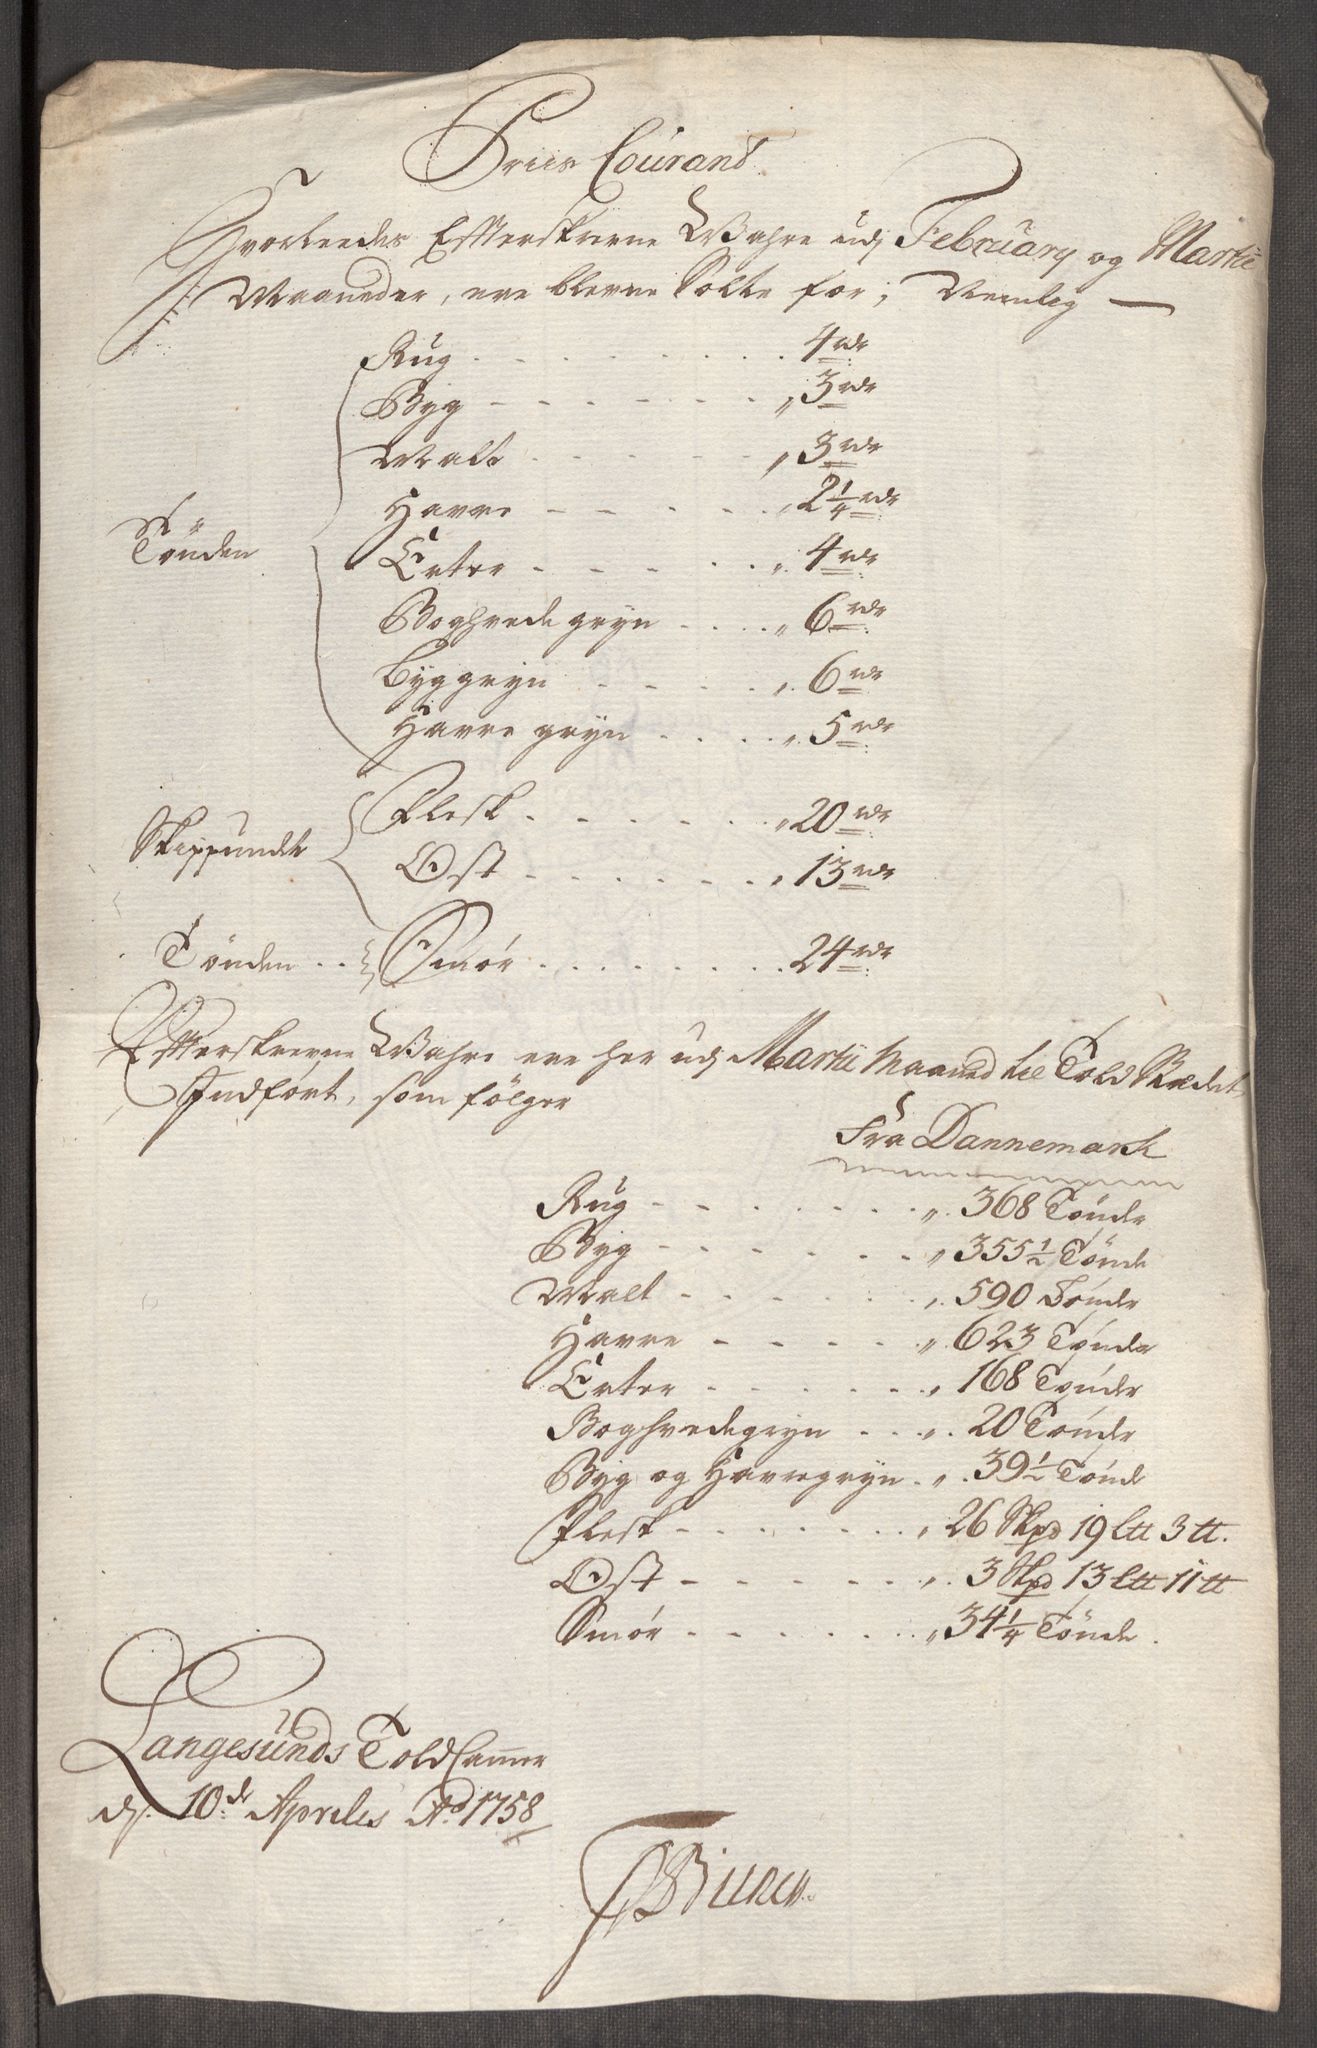 Priis Courand
Hvorleedes Effterskrevne Wahre udj February og Martii
Maaneder, ere blevne Solte for; Nemlig —
Rug . . . . 4 rdr
Byg - - - - „ 3 rdr
Malt - - - - „ 3 rdr
Havre - - - - „ 2 1/4 rdr
Tönden
Erter - - - - „ 4 rdr
Boghvede gryn . . . . „ 6 rdr
Byggryn - - - - „ 6 rdr
Havre gryn . . . . „ 5 rdr
Flesk . . . . „ 20 rdr
Skippundet
Ost . . . . „ 13 rdr
Tönden . . Smör . . . . 24 rdr
Effterskrevne Wahre ere her udj Martii Maaned til Told Stædet
Indfört, som fölger
Fra Dannemark
Rug - - - - „ 368 Tönder
Byg - - - - „ 355 1/2 Tönde
Malt - - - - „ 590 Tönder
Havre - - - - „ 623 Tönder
Erter - - - - „ 168 Tönder
Boghvedegryn . . . „ 20 Tönder
Byg og Havregryn . „ 39 1/2 Tönde
Flesk - - - - „ 26 Skpd 19 L℔ 3 ℔.
Ost - - - - „ 3 Skpd 13 L℔ 11 ℔
Smör - - - - „ 34 1/4 Tönde .
Langesunds Told Cammer
dj. 10de Aprilis Ao 1758